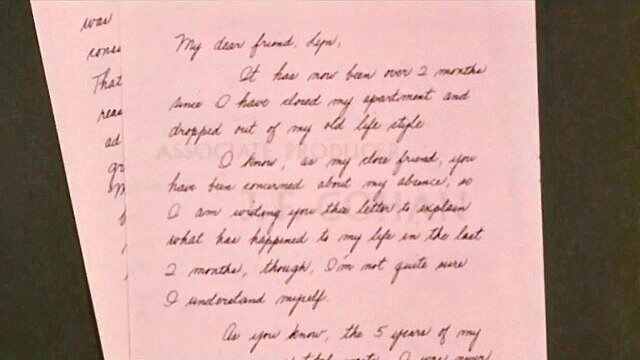 was
That
ad
My dear friend, Lyn,
It has now been over 2 months
since I have closed my apartment and
dropped out of my old life style.
ASSOCIATE PRODUCER
I know, as my close friend, you
have been concerned about my absence, so
I am writing you this letter to explain
what has happened to my life in the last
2 months, though, I'm not quite sure
I understand myself.
As you know, the 5 years of my
I was never